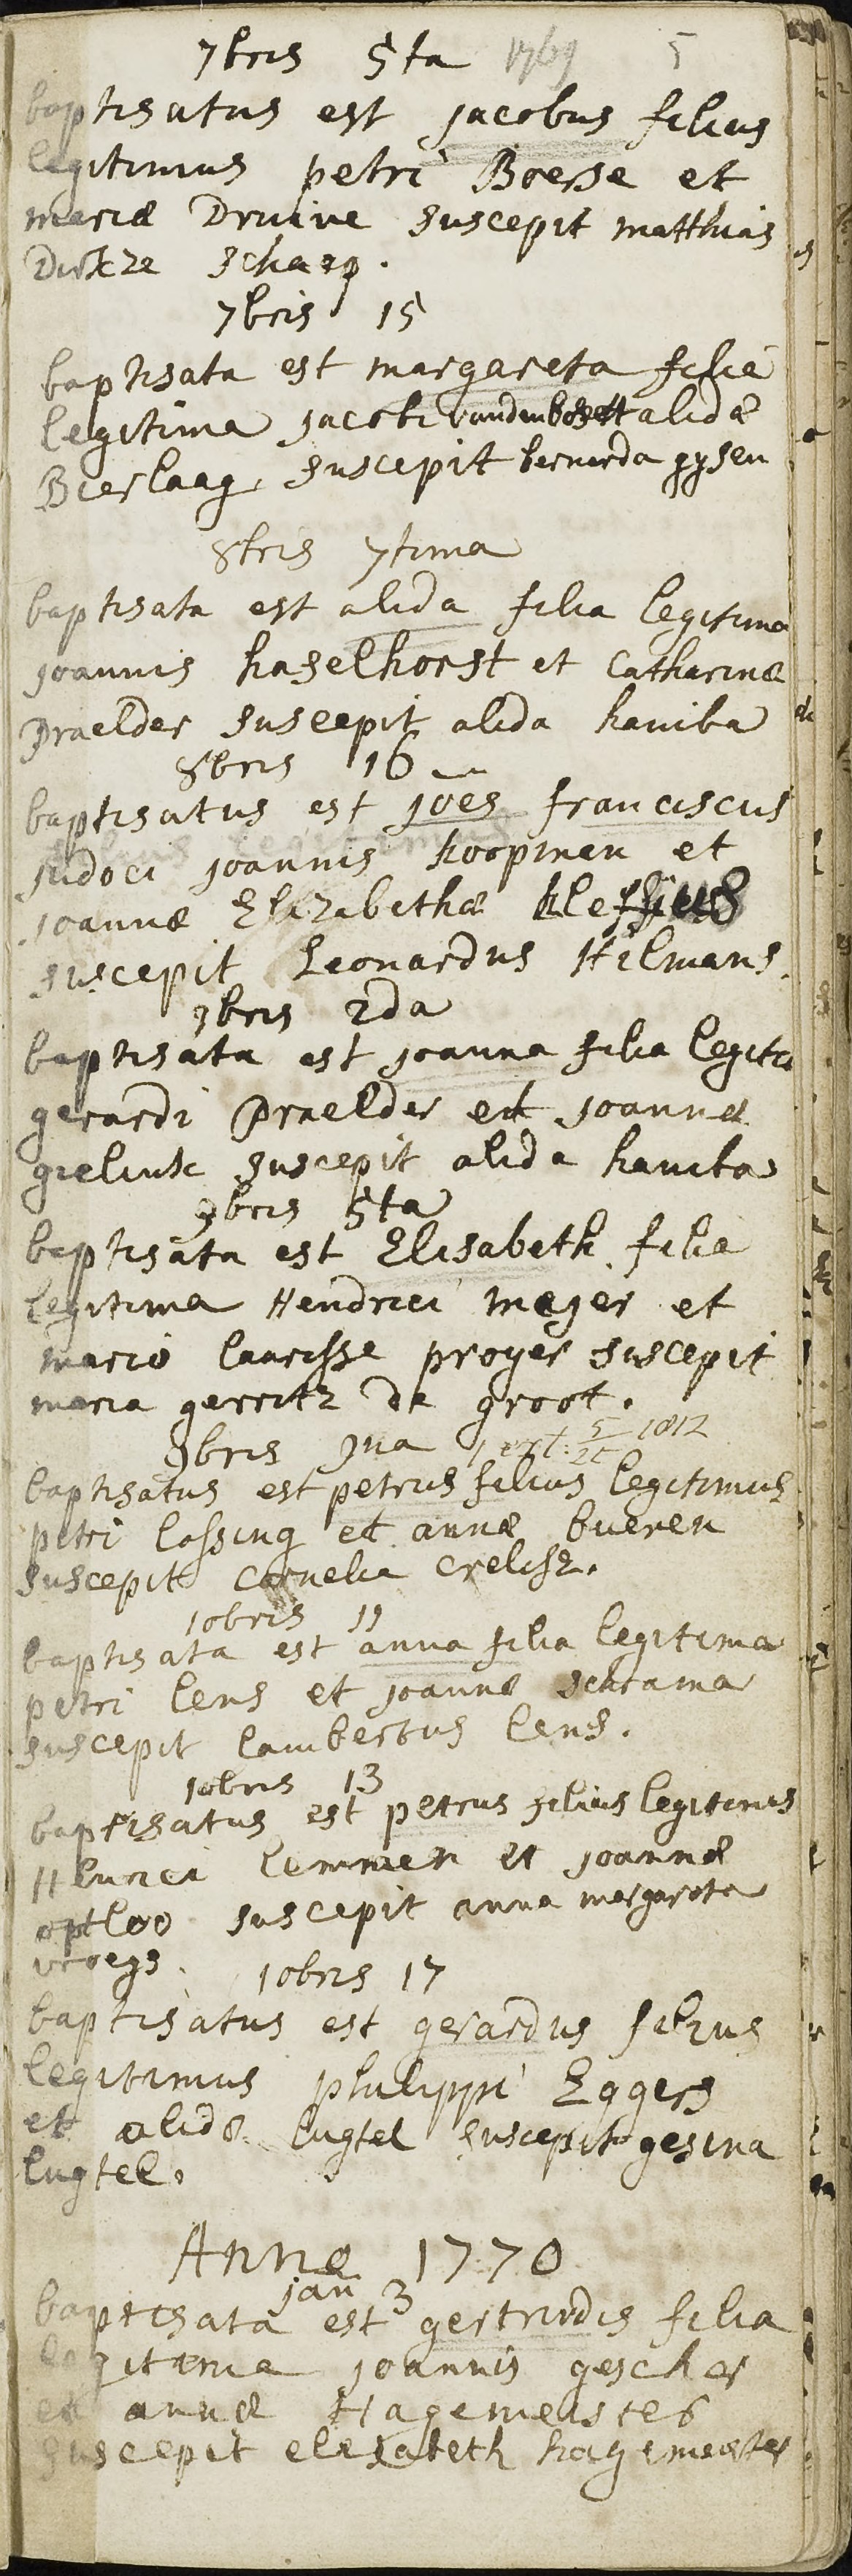 7bris 5ta 1769 5
baptisatus est jacobus filius
legitimus petri Boesse et
mariæ Druive suscepit matthias
Dirkze schaap.
7bris 15
baptisata est margareta filia
legitima jacobi vandenbosch et alidæ
Bierlaag suscepit bernarda gysen
8bris 7tima
baptisata est alida filia legitima
joannis haselhorst et Catharinæ
praelder suscepit alida haviba
8bris 16
baptisatus est joes franciscus
judoci joannis koopman et
joannæ Elizabethæ
suscepit Leonardus Hilmans.
9bris 2da
baptisata est joanna filia legiti
gerardi praelder et joannæ
gielink suscepit alida haviba
9bris 5ta
baptisata est Elisabeth filia
legitima Hendrici meijer et
mariæ laurisse proyer suscepit
maria gerritz de groot.
9bris 5/25 1812
baptisatus est petrus filius legitimus
petri lossing et annæ bueren
suscepit cornelia crelisz.
10bris 11
baptisata est anna filia legitima
petri lens et joannæ schrama
suscepit lambertus lens.
10bris 13
baptisatus est petrus filius legitimus
Hinrici lemmer et joannæ
optloo suscepit anna margareta
vroegs.
10bris 17
baptisatus est gerardus filius
legitimus philippi Eggers
et alidæ lugtel suscepit gesina
lugtel.
Anno 1770
jan 3
baptisata est gertrudis filia
legitima joannis gescher
et annæ Hagemeister
suscepit elizabeth hagemeester